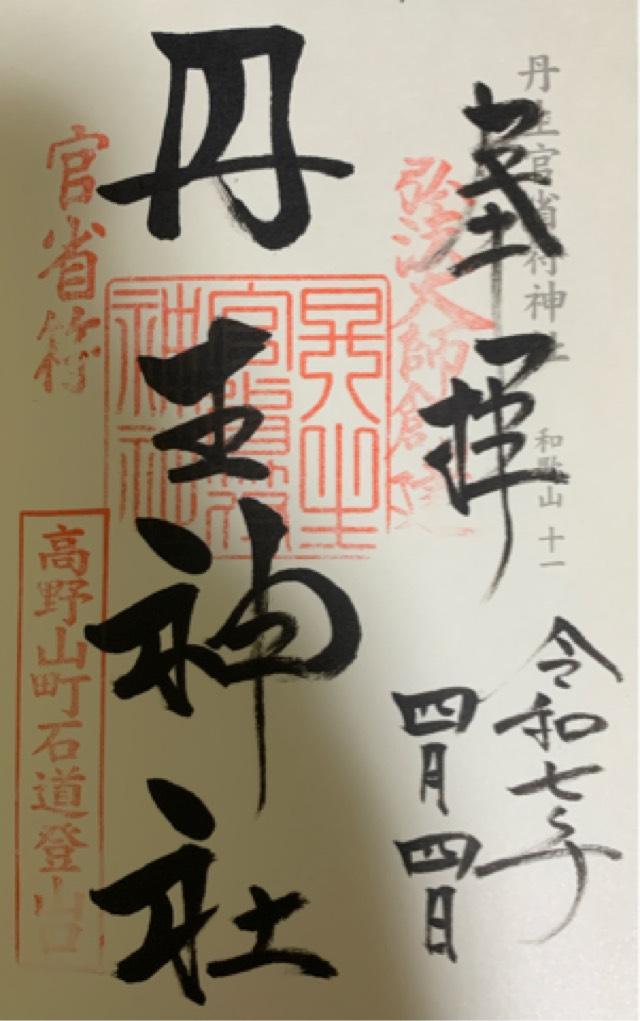 丹生官省符神社 和歌山 十一
奉拝
弘法大師創建
令和七年
四月四日
丹生神社
丹生
官省符
神社
官省符
高野山町石道登山口